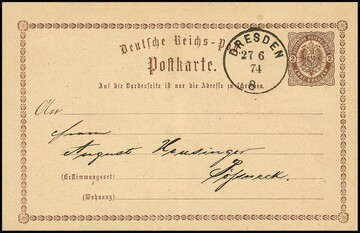 Deutsche Reichs-P
Postkarte.
Auf die Vorderseite ist nur die Adresse zu schreiben.
DRESDEN
27 6
74
8
2 2
An
Herrn
August Heusinger
(Bestimmungsort) Pößneck.
(Wohnung)